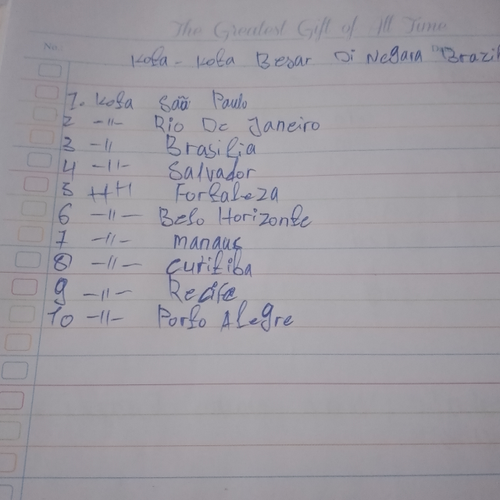 The Greatest Gift of All Time
No:
Kota - Kota Besar Di Negara "Brazil
1. Kota São Paulo
2 -11- Rio De Janeiro
3 -11 Brasilia
4 -11- Salvador
5 -11- Fortaleza
6 -11- Belo Horizonte
7 -11- manaus
8 -11- Curitiba
9 -11- Recife
10 -11- Porto Alegre